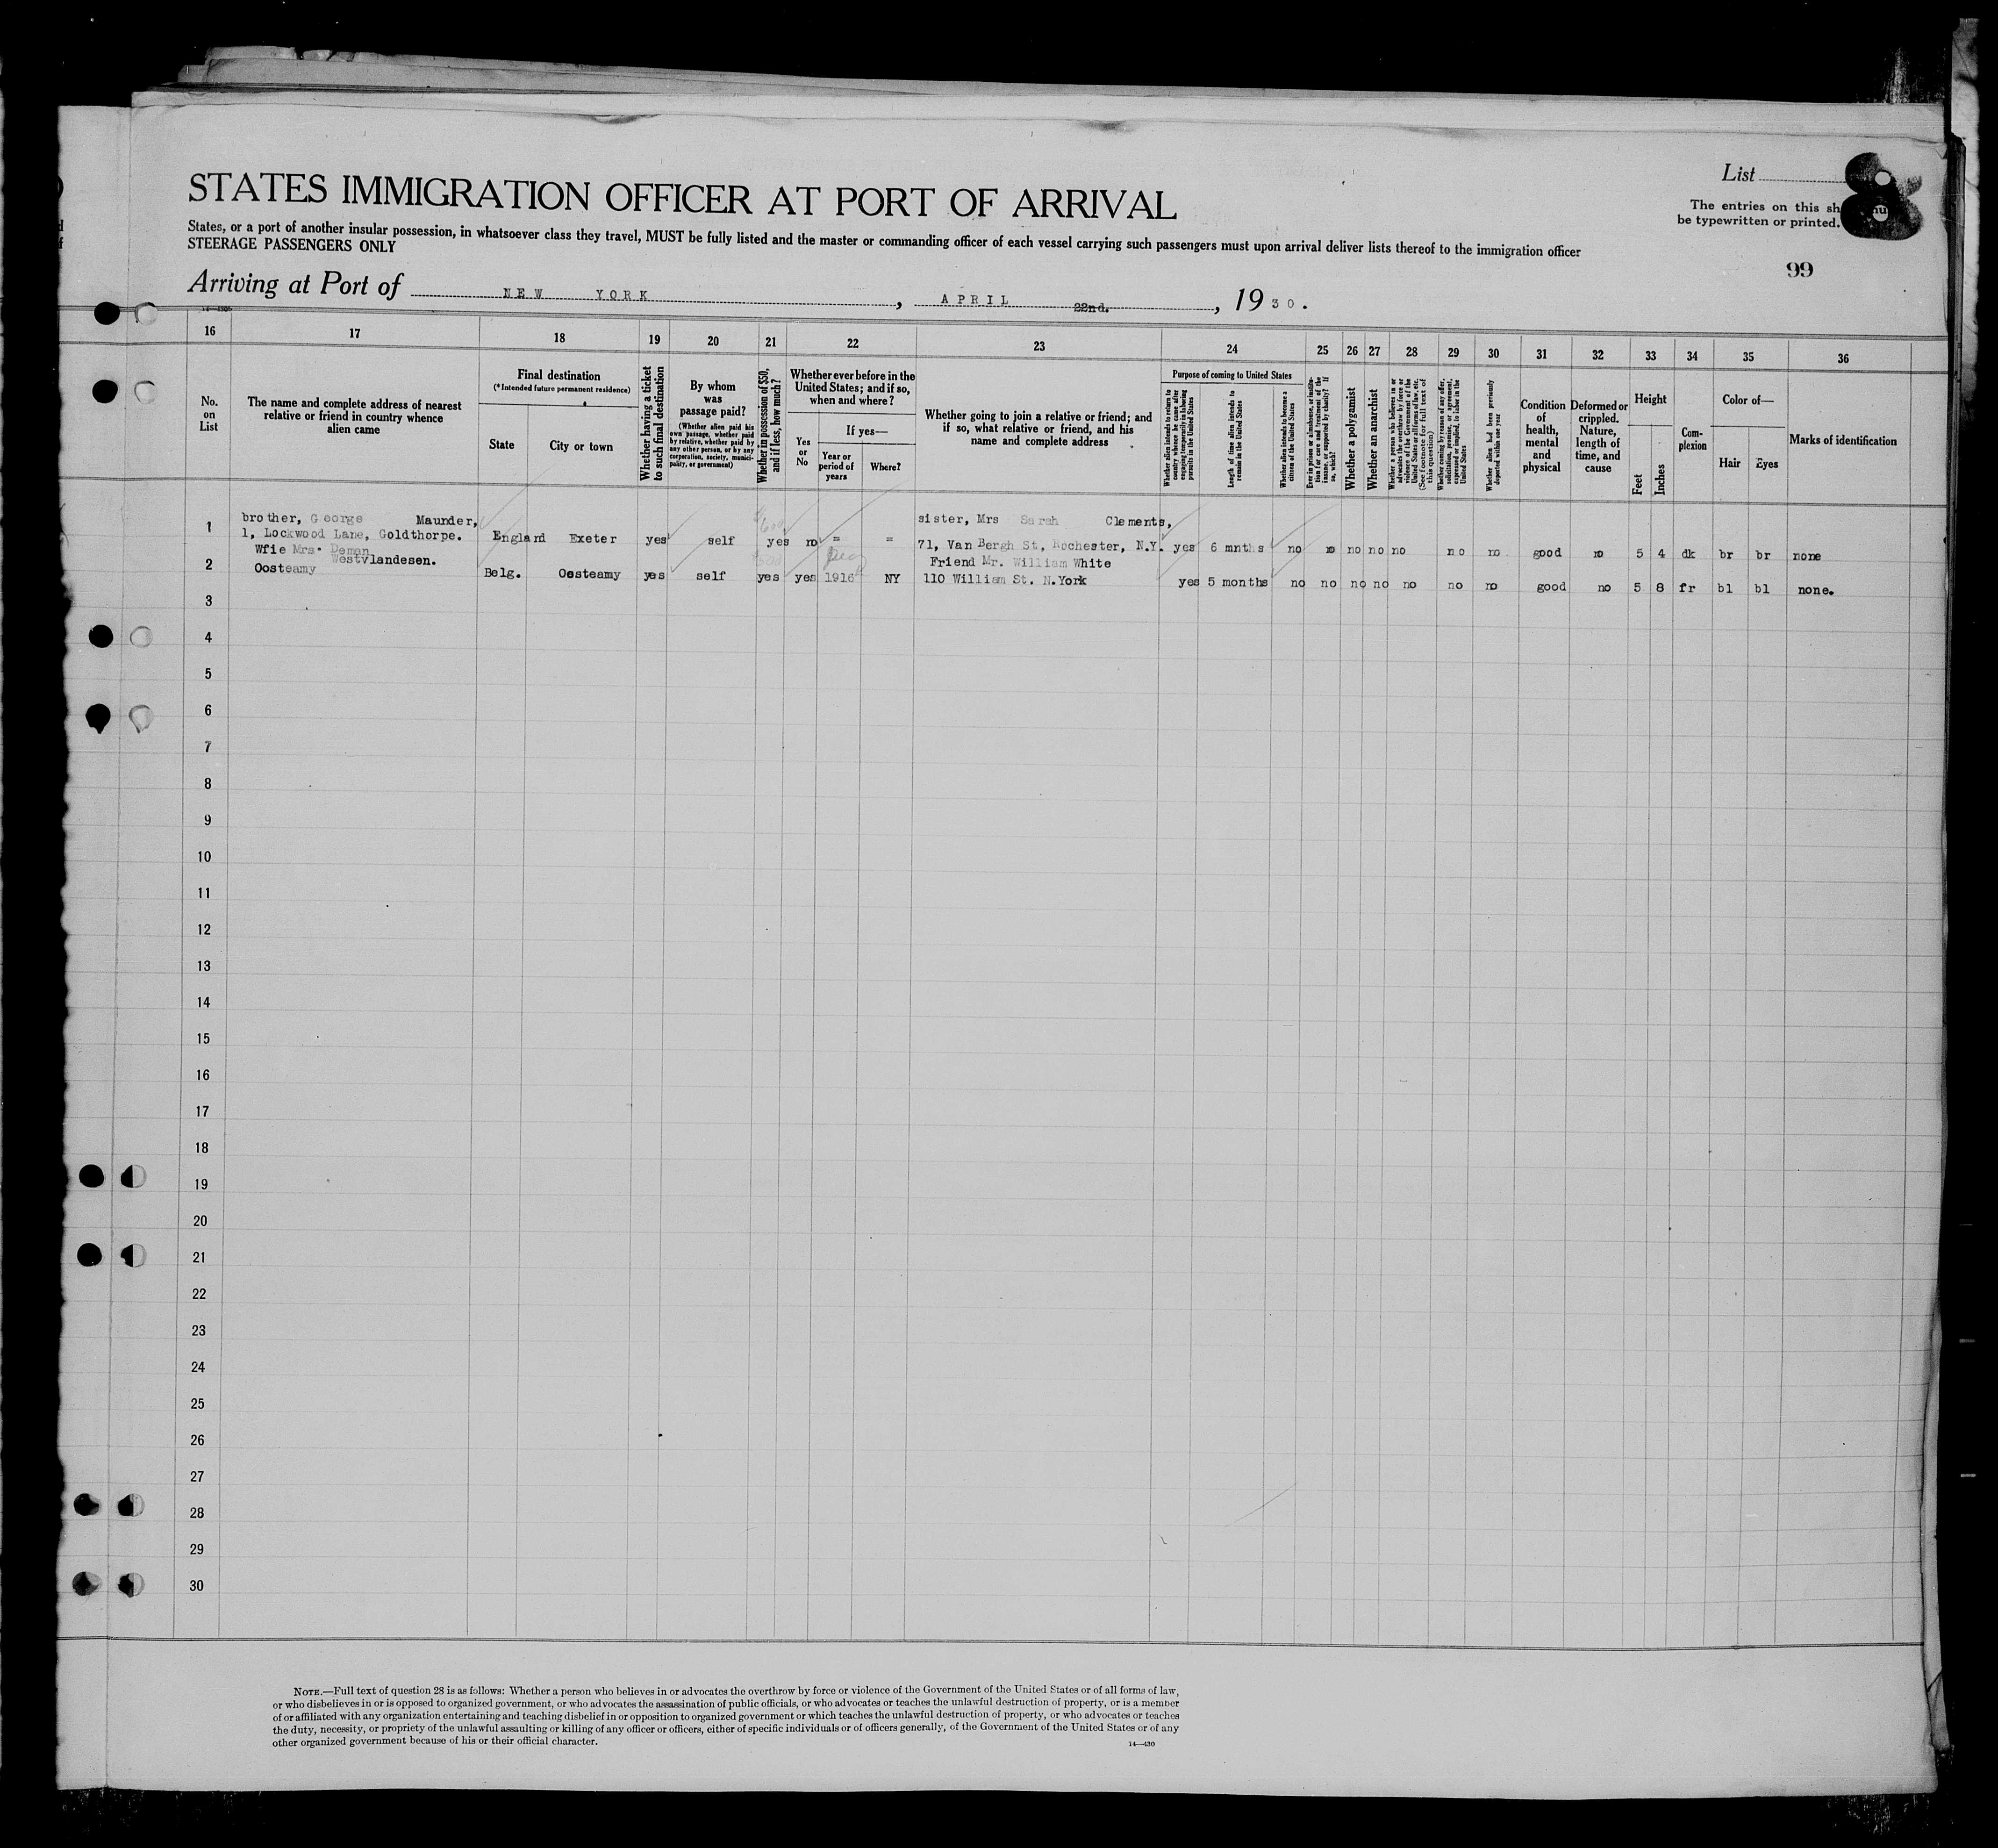 STATES IMMIGRATION OFFICER AT PORT OF ARRIVAL
States, or a port of another insular possession, in whatsoever class they travel, MUST be fully listed and the master or commanding officer of each vessel carrying such passengers must upon arrival deliver lists thereof to the immigration officer
STEERAGE PASSENGERS ONLY
List
The entries on this sh
be typewritten or printed.
99
Arriving at Port of NEW YORK, APRIL 22nd., 1930.
16 17 18 19 20 21 22 23 24 25 26 27 28 29 30 31 32 33 34 35 36
No. on List
The name and complete address of nearest relative or friend in country whence alien came
Final destination
(*Intended future permanent residence)
State
City or town
Whether having a ticket to such final destination
By whom was passage paid?
(Whether alien paid his own passage, whether paid by relative, whether paid by any other person, or by any corporation, society, municipality, or government)
Whether in possession of $50, and if less, how much?
Whether ever before in the United States; and if so, when and where?
Yes or No
If yes—
Year or period of years
Where?
Whether going to join a relative or friend; and if so, what relative or friend, and his name and complete address
Purpose of coming to United States
Whether alien intends to return to country whence he came after engaging temporarily in laboring pursuits in the United States
Length of time alien intends to remain in the United States
Whether alien intends to become a citizen of the United States
Ever in prison or almshouse, or institution for care and treatment of the insane, or supported by charity? If so, which?
Whether a polygamist
Whether an anarchist
Whether a person who believes in or advocates the overthrow by force or violence of the Government of the United States or all forms of law, etc. (See footnote for full text of this question)
Whether coming by reason of any offer, solicitation, promise, or agreement, expressed or implied, to labor in the United States
Whether alien had been previously deported within one year
Condition of health, mental and physical
Deformed or crippled. Nature, length of time, and cause
Height
Feet
Inches
Complexion
Color of—
Hair
Eyes
Marks of identification
1 brother, George Maunder, sister, Mrs Sarah Clements,
1, Lockwood Lane, Goldthorpe. England Exeter yes self yes no = = 71, Van Bergh St, Rochester, N.Y. yes 6 mnths no no no no no no no good no 5 4 dk br br none
2 Wfie Mrs. Deman Westvlandesen. Friend Mr. William White
Oosteamy Belg. Oosteamy yes self yes yes 1916 NY 110 William St. N.York yes 5 months no no no no no no no good no 5 8 fr bl bl none.
3
4
5
6
7
8
9
10
11
12
13
14
15
16
17
18
19
20
21
22
23
24
25
26
27
28
29
30
NOTE.—Full text of question 28 is as follows: Whether a person who believes in or advocates the overthrow by force or violence of the Government of the United States or of all forms of law,
or who disbelieves in or is opposed to organized government, or who advocates the assassination of public officials, or who advocates or teaches the unlawful destruction of property, or is a member
of or affiliated with any organization entertaining and teaching disbelief in or opposition to organized government or which teaches the unlawful destruction of property, or who advocates or teaches
the duty, necessity, or propriety of the unlawful assaulting or killing of any officer or officers, either of specific individuals or of officers generally, of the Government of the United States or of any
other organized government because of his or their official character.
14—430